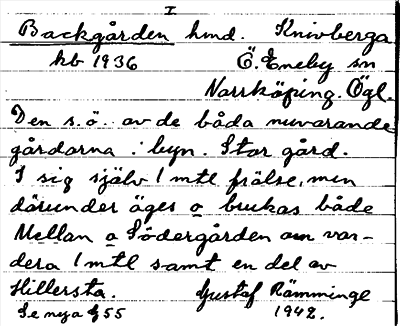 I
Backgården hmd. Knivberga
kb 1936 Ö. Eneby sn
Norrköping. Ögl.
Den s.ö. av de båda nuvarande
gårdarna i byn. Stor gård.
I sig själv 1 mtl frälse, men
därunder äges o brukas både
Mellan o Södergården om var-
dera 1 mtl samt en del av
Hillersta. Gustaf Rämminge
Se nya § 55 1942.